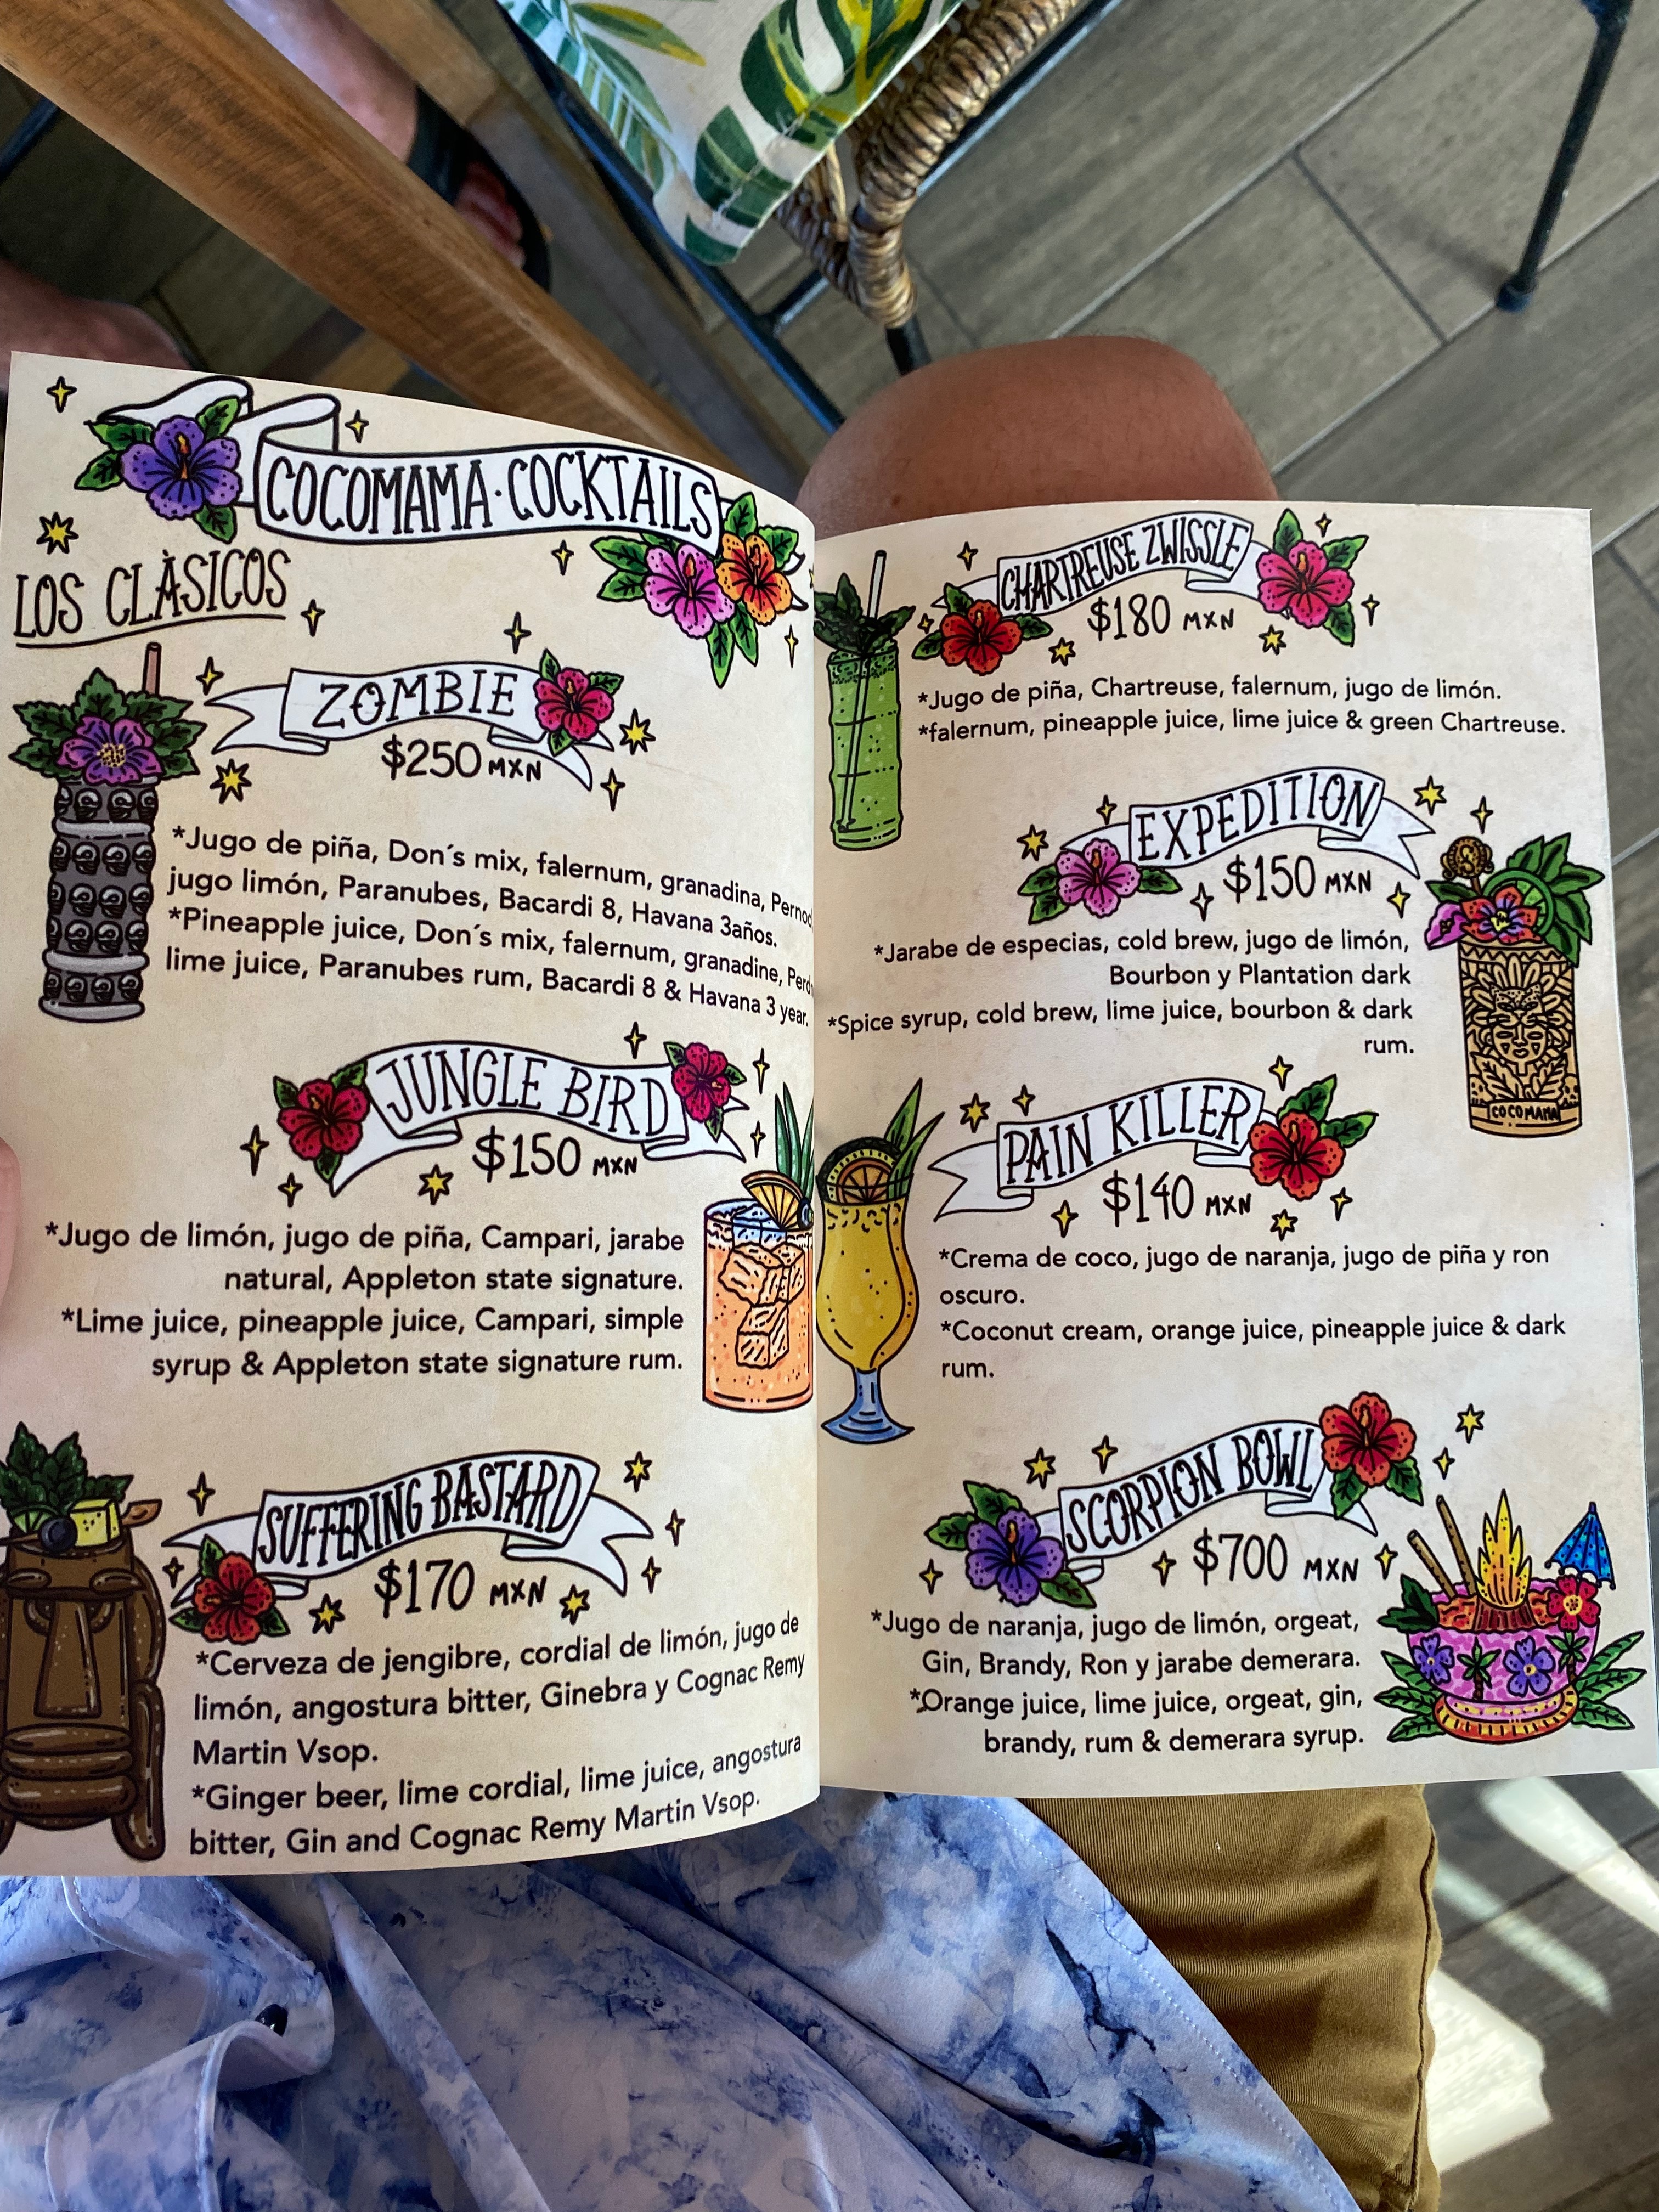 COCOMAMA·COCKTAILS
LOS CLÀSICOS
ZOMBIE
$250 MXN
*Jugo de piña, Don´s mix, falernum, granadina, Pernod,
jugo limón, Paranubes, Bacardi 8, Havana 3años.
*Pineapple juice, Don´s mix, falernum, granadine,
lime juice, Paranubes rum, Bacardi 8 & Havana 3 year.
JUNGLE BIRD
$150 MXN
*Jugo de limón, jugo de piña, Campari, jarabe
natural, Appleton state signature.
*Lime juice, pineapple juice, Campari, simple
syrup & Appleton state signature rum.
SUFFERING BASTARD
$170 MXN
*Cerveza de jengibre, cordial de limón, jugo de
limón, angostura bitter, Ginebra y Cognac Remy
Martin Vsop.
*Ginger beer, lime cordial, lime juice, angostura
bitter, Gin and Cognac Remy Martin Vsop.
CHARTREUSE ZWISSLE
$180 MXN
*Jugo de piña, Chartreuse, falernum, jugo de limón.
*falernum, pineapple juice, lime juice & green Chartreuse.
EXPEDITION
$150 MXN
*Jarabe de especias, cold brew, jugo de limón,
Bourbon y Plantation dark
*Spice syrup, cold brew, lime juice, bourbon & dark
rum.
COCOMAMA
PAIN KILLER
$140 MXN
*Crema de coco, jugo de naranja, jugo de piña y ron
oscuro.
*Coconut cream, orange juice, pineapple juice & dark
rum.
SCORPION BOWL
$700 MXN
*Jugo de naranja, jugo de limón, orgeat,
Gin, Brandy, Ron y jarabe demerara.
*Orange juice, lime juice, orgeat, gin,
brandy, rum & demerara syrup.